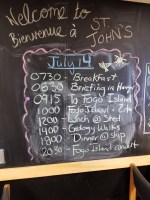 Welcome to
Bienvenue à ST. JOHN'S
July 14
0730 - Breakfast
0830 - Briefing in Hangar
0915 To Fogo Island
1000 Fogo Island
1200 Lunch @ Shed
1400 Geology Walks
1800 Dinner @ ship
2030 - Fogo Island concert